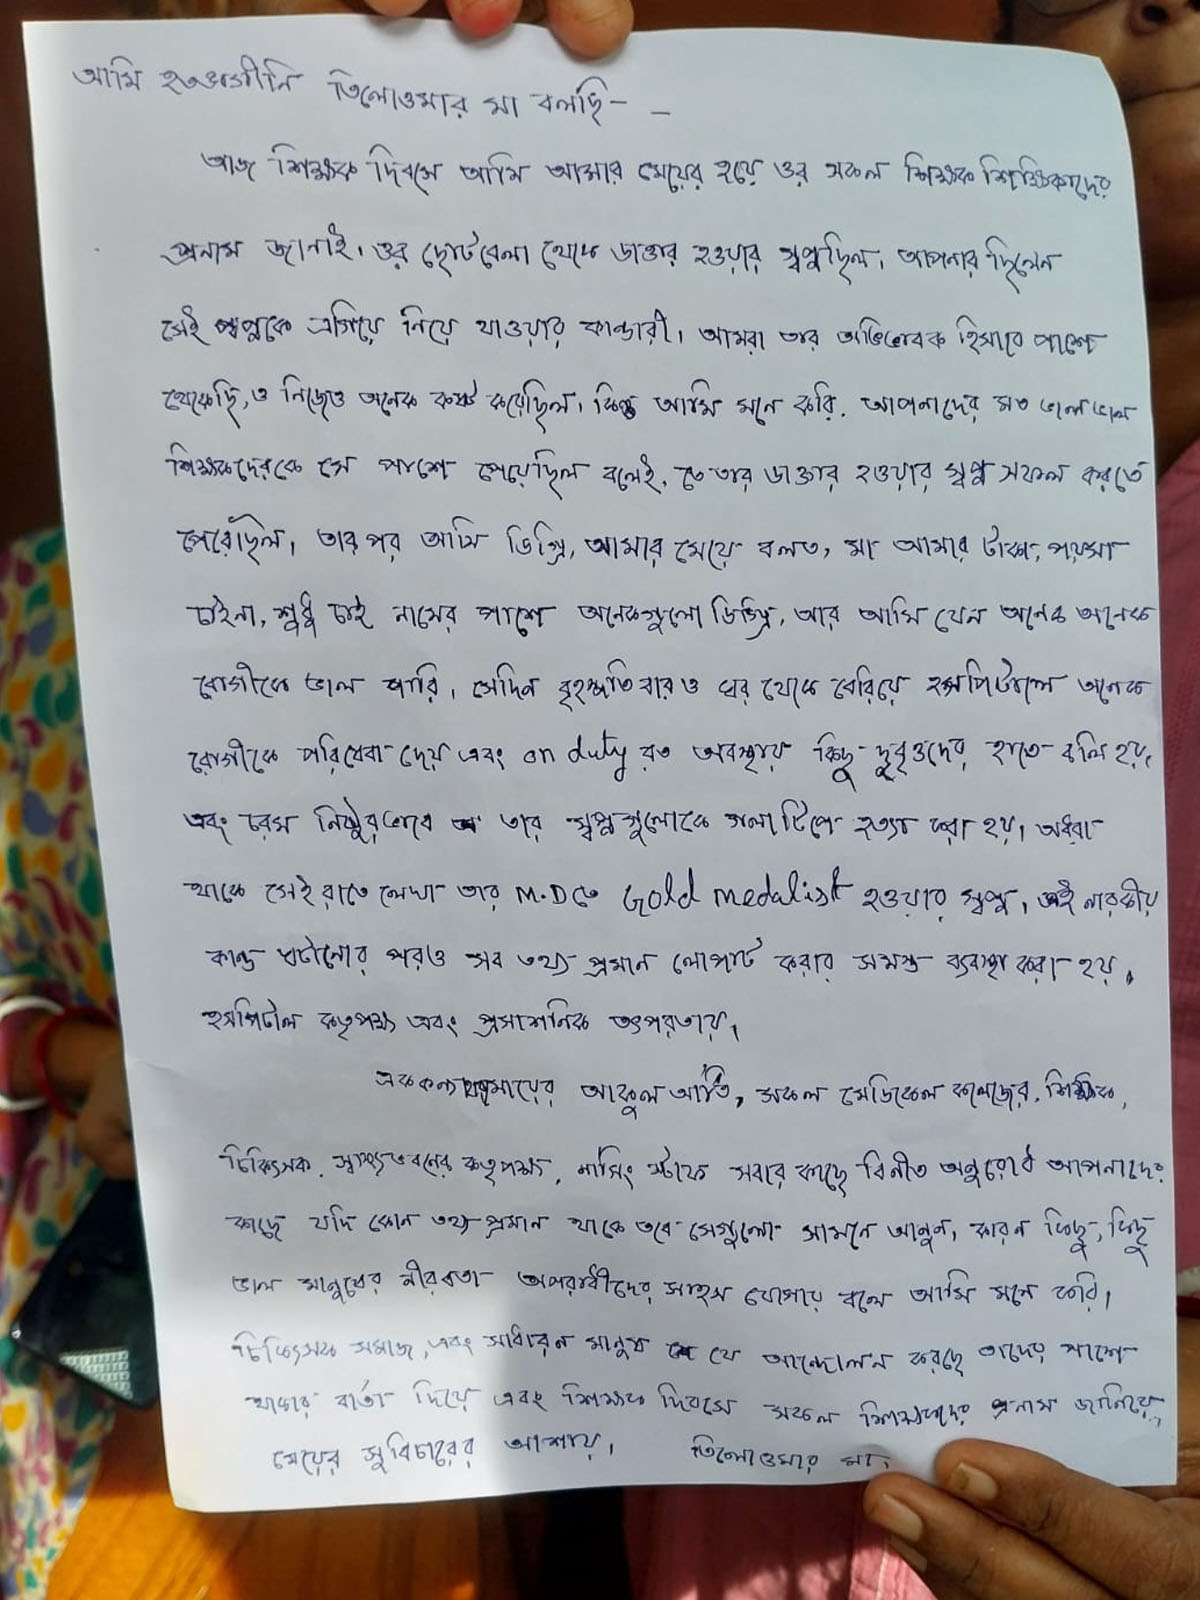 আমি হতভাগীনি তিলোওমার মা বলছি - -
আজ শিক্ষক দিবসে আমি আমার মেয়ের হয়ে ওর সকল শিক্ষক শিক্ষিকাদের
প্রনাম জানাই। ওর ছোটবেলা থেকে ডাক্তার হওয়ার স্বপ্ন ছিল। আপনারা ছিলেন
সেই স্বপ্নকে এগিয়ে নিয়ে যাওয়ার কান্ডারী। আমরা তার অভিভাবক হিসাবে পাশে
থেকেছি, ও নিজেও অনেক কষ্ট করেছিল। কিন্তু আমি মনে করি, আপনাদের মত ভাল ভাল
শিক্ষকদেরকে সে পাশে পেয়েছিল বলেই, তার ডাক্তার হওয়ার স্বপ্ন সফল করতে
পেরেছিল। তারপর আমার মেয়ে বলত, মা আমার টাকা, পয়সা
চাইনা, শুধু চাই নামের পাশে অনেকগুলো ডিগ্রি, আর আমি যেন অনেক অনেক
রোগীকে ভাল পারি। সেদিন বৃহস্পতিবারও ঘর থেকে বেরিয়ে হসপিটালে অনেক
রোগীকে পরিষেবা দেয় এবং on duty রত অবস্থায় কিছু দুবৃত্তদের হাতে বলি হয়,
এবং চরম নিষ্ঠুরভাবে তার স্বপ্নগুলোকে গলা টিপে হত্যা করা হয়। অধরা
থাকে সেই রাতে লেখা তার M.D তে Gold medalist হওয়ার স্বপ্ন। এই নারকীয়
কান্ড ঘটানোর পরও সব তথ্য প্রমান লোপাট করার সমস্ত ব্যবস্থা করা হয়,
হসপিটাল কতৃপক্ষ এবং প্রসাশনিক তৎপরতায়।
মায়ের আকুল আর্তি, সকল মেডিকেল কলেজের, শিক্ষক,
চিকিৎসক, স্বাস্থ্যভবনের কতৃপক্ষ, নার্সিং স্টাফ সবার কাছে বিনীত অনুরোধ আপনাদের
কাছে যদি কোন তথ্য প্রমান থাকে তবে সেগুলো সামনে আনুন, কারন কিছু, কিছু
ভাল মানুষের নীরবতা অপরাধীদের সাহস যোগায় বলে আমি মনে করি।
চিকিৎসক সমাজ, এবং সাধারন মানুষ যে আন্দোলন করছে তাদের পাশে
থাকার বার্তা দিয়ে এবং শিক্ষক দিবসে সকল শিক্ষকদের প্রনাম জানিয়ে,
মেয়ের সুবিচারের আশায়। তিলোওমার মা।